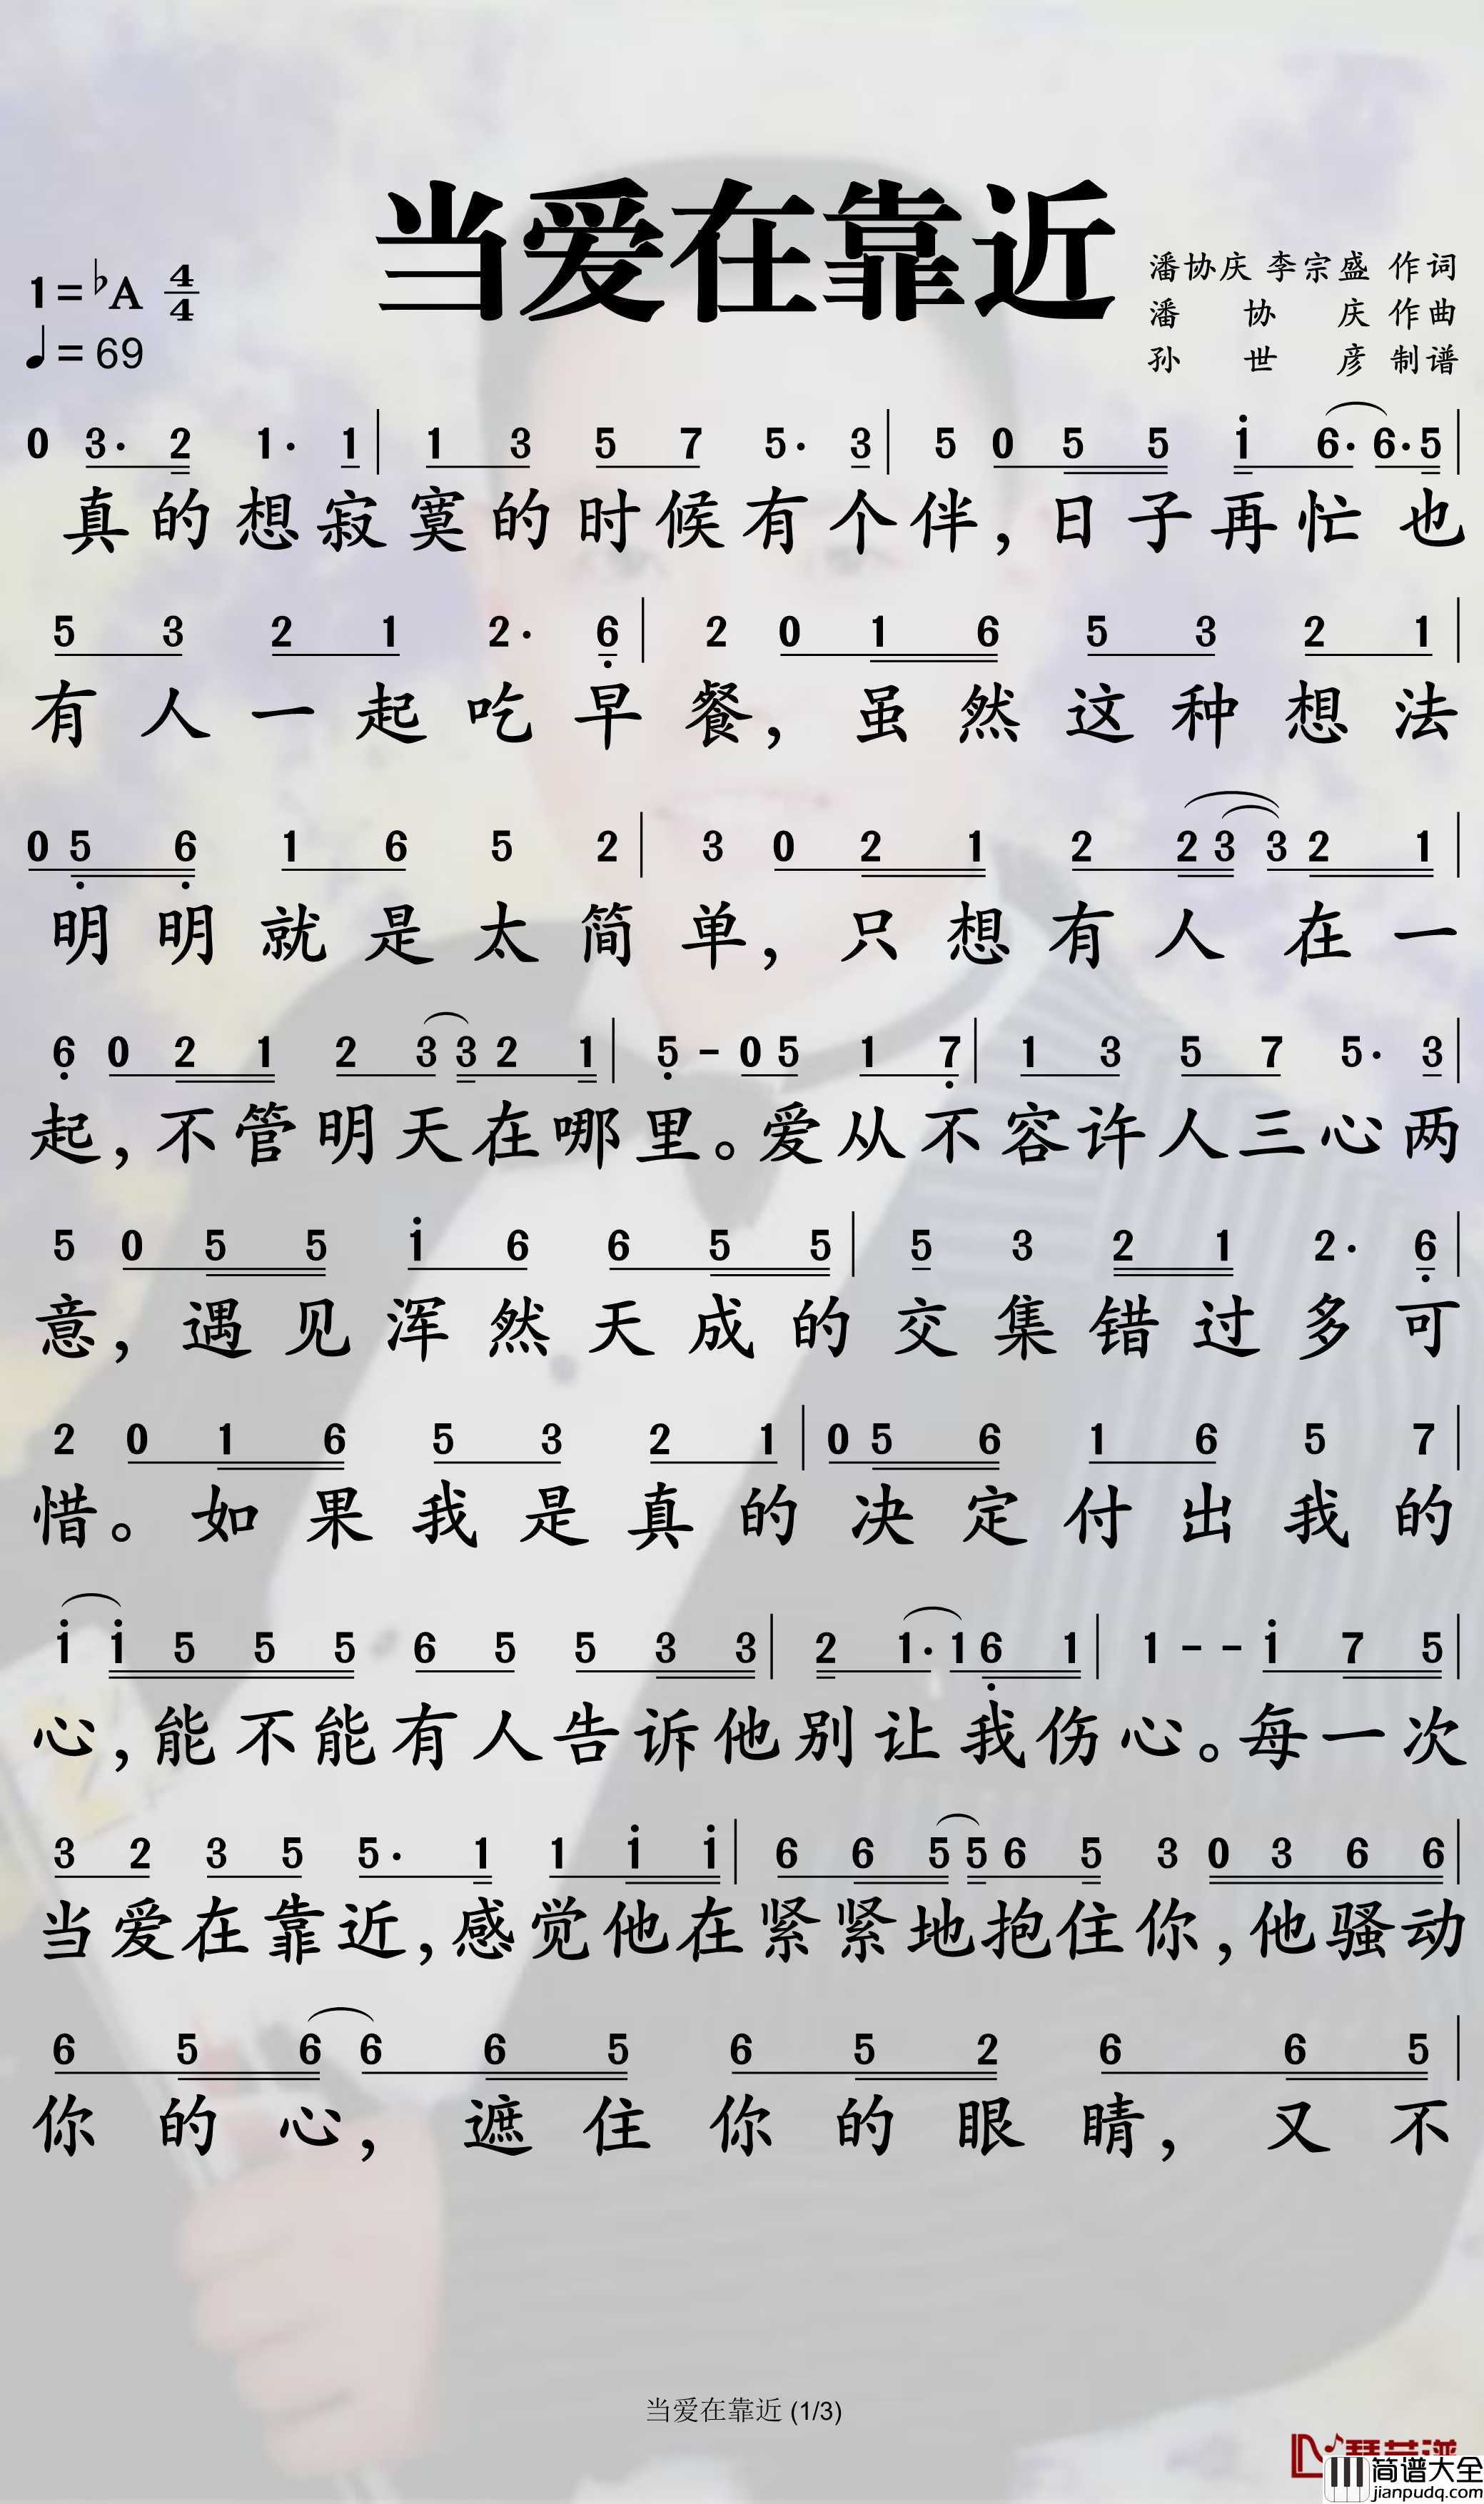 当爱在靠近
1=♭A 4/4
♩=69
潘协庆 李宗盛 作词
潘 协 庆 作曲
孙 世 彦 制谱
0 3· 2 1· 1 | 1 3 5 7 5· 3 | 5 0 5 5 i 6· 6· 5 |
真的想寂寞的时候有个伴，日子再忙也
5 3 2 1 2· 6 | 2 0 1 6 5 3 2 1 |
有人一起吃早餐，虽然这种想法
0 5 6 1 6 5 2 | 3 0 2 1 2 2 3 3 2 1 |
明明就是太简单，只想有人在一
6 0 2 1 2 3 3 2 1 | 5 - 0 5 1 7 | 1 3 5 7 5· 3 |
起，不管明天在哪里。爱从不容许人三心两
5 0 5 5 i 6 6 5 5 | 5 3 2 1 2· 6 |
意，遇见浑然天成的交集错过多可
2 0 1 6 5 3 2 1 | 0 5 6 1 6 5 7 |
惜。如果我是真的决定付出我的
i i 5 5 5 6 5 5 3 3 | 2 1· 1 6 1 | 1 - - i 7 5 |
心，能不能有人告诉他别让我伤心。每一次
3 2 3 5 5· 1 1 i i | 6 6 5 5 6 5 3 0 3 6 6 |
当爱在靠近，感觉他在紧紧地抱住你，他骚动
6 5 6 6 6 5 6 5 2 6 6 5 |
你的心，遮住你的眼睛，又不
当爱在靠近 (1/3)
简谱大全
jianpudq.com